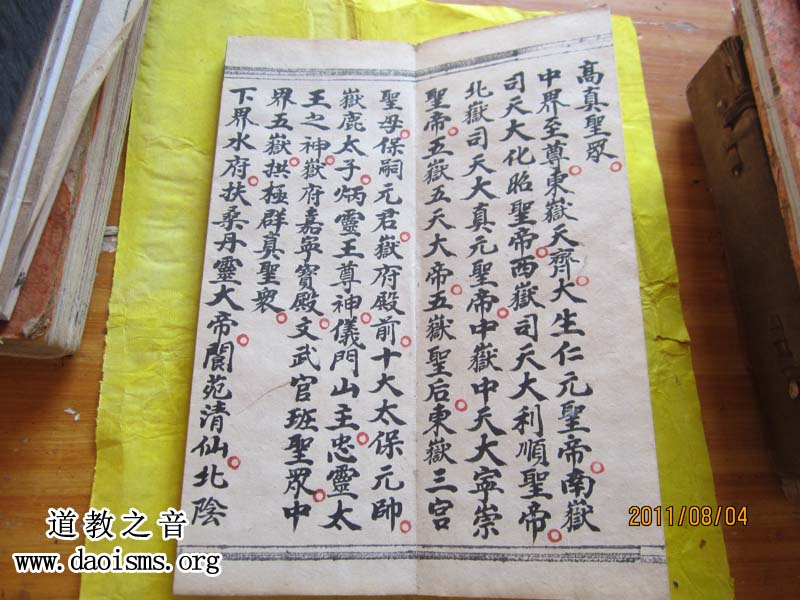 高真聖眾
中界至尊東嶽天齊大生仁元聖帝南嶽
司天大化昭聖帝西嶽司天大利順聖帝
北嶽司天大真元聖帝中嶽中天大寧崇
聖帝五嶽五天大帝五嶽聖后東嶽三宮
聖母保嗣元君嶽府殿前十大太保元帥
嶽鹿太子炳靈王尊神儀門山王忠靈太
王之神嶽府嘉寧寶殿文武官班聖眾中
界五嶽拱極群真聖衆
下界水府扶桑丹靈大帝閬苑清仙北陰
2011/08/04
道教之音
www.daoisms.org